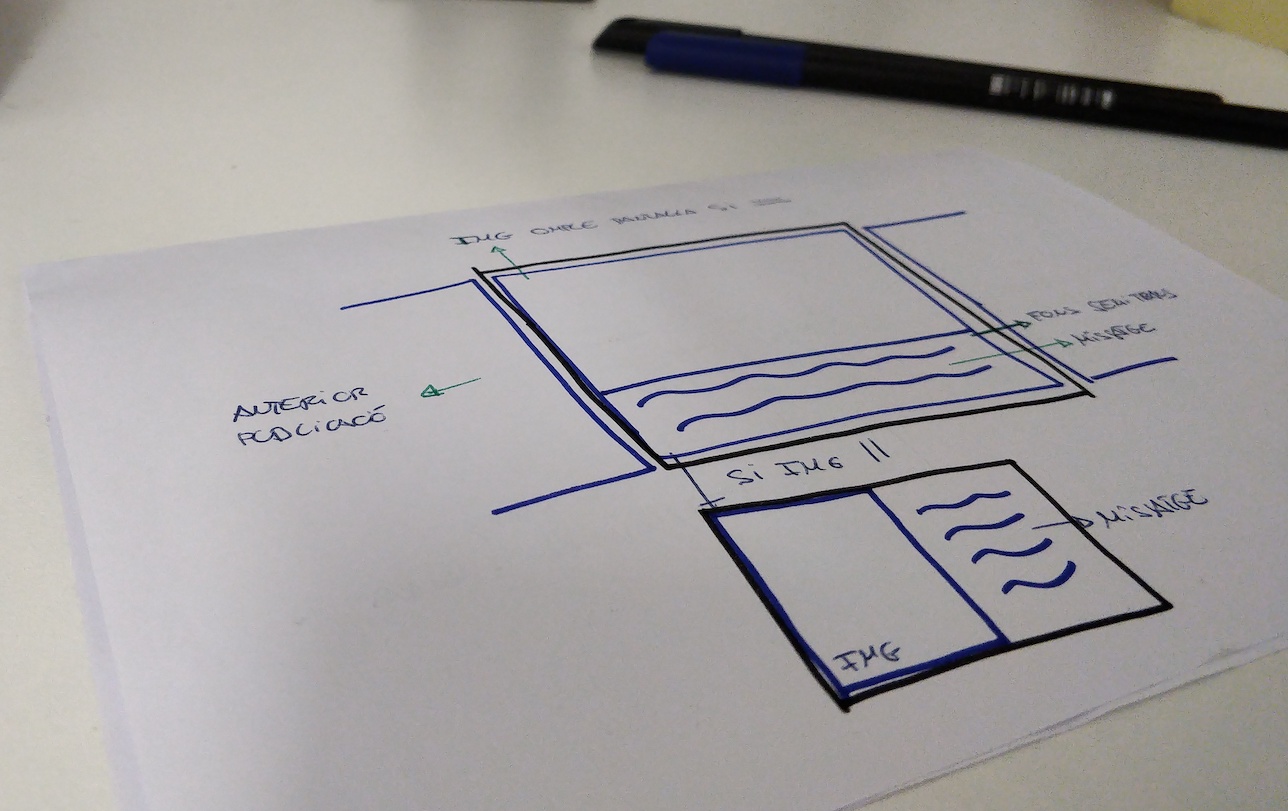 IMG OMPLE PANTALLA SI
FONS SEMITRANS
MISSATGE
ANTERIOR
PUBLICACIÓ
SI IMG ||
MISSATGE
IMG